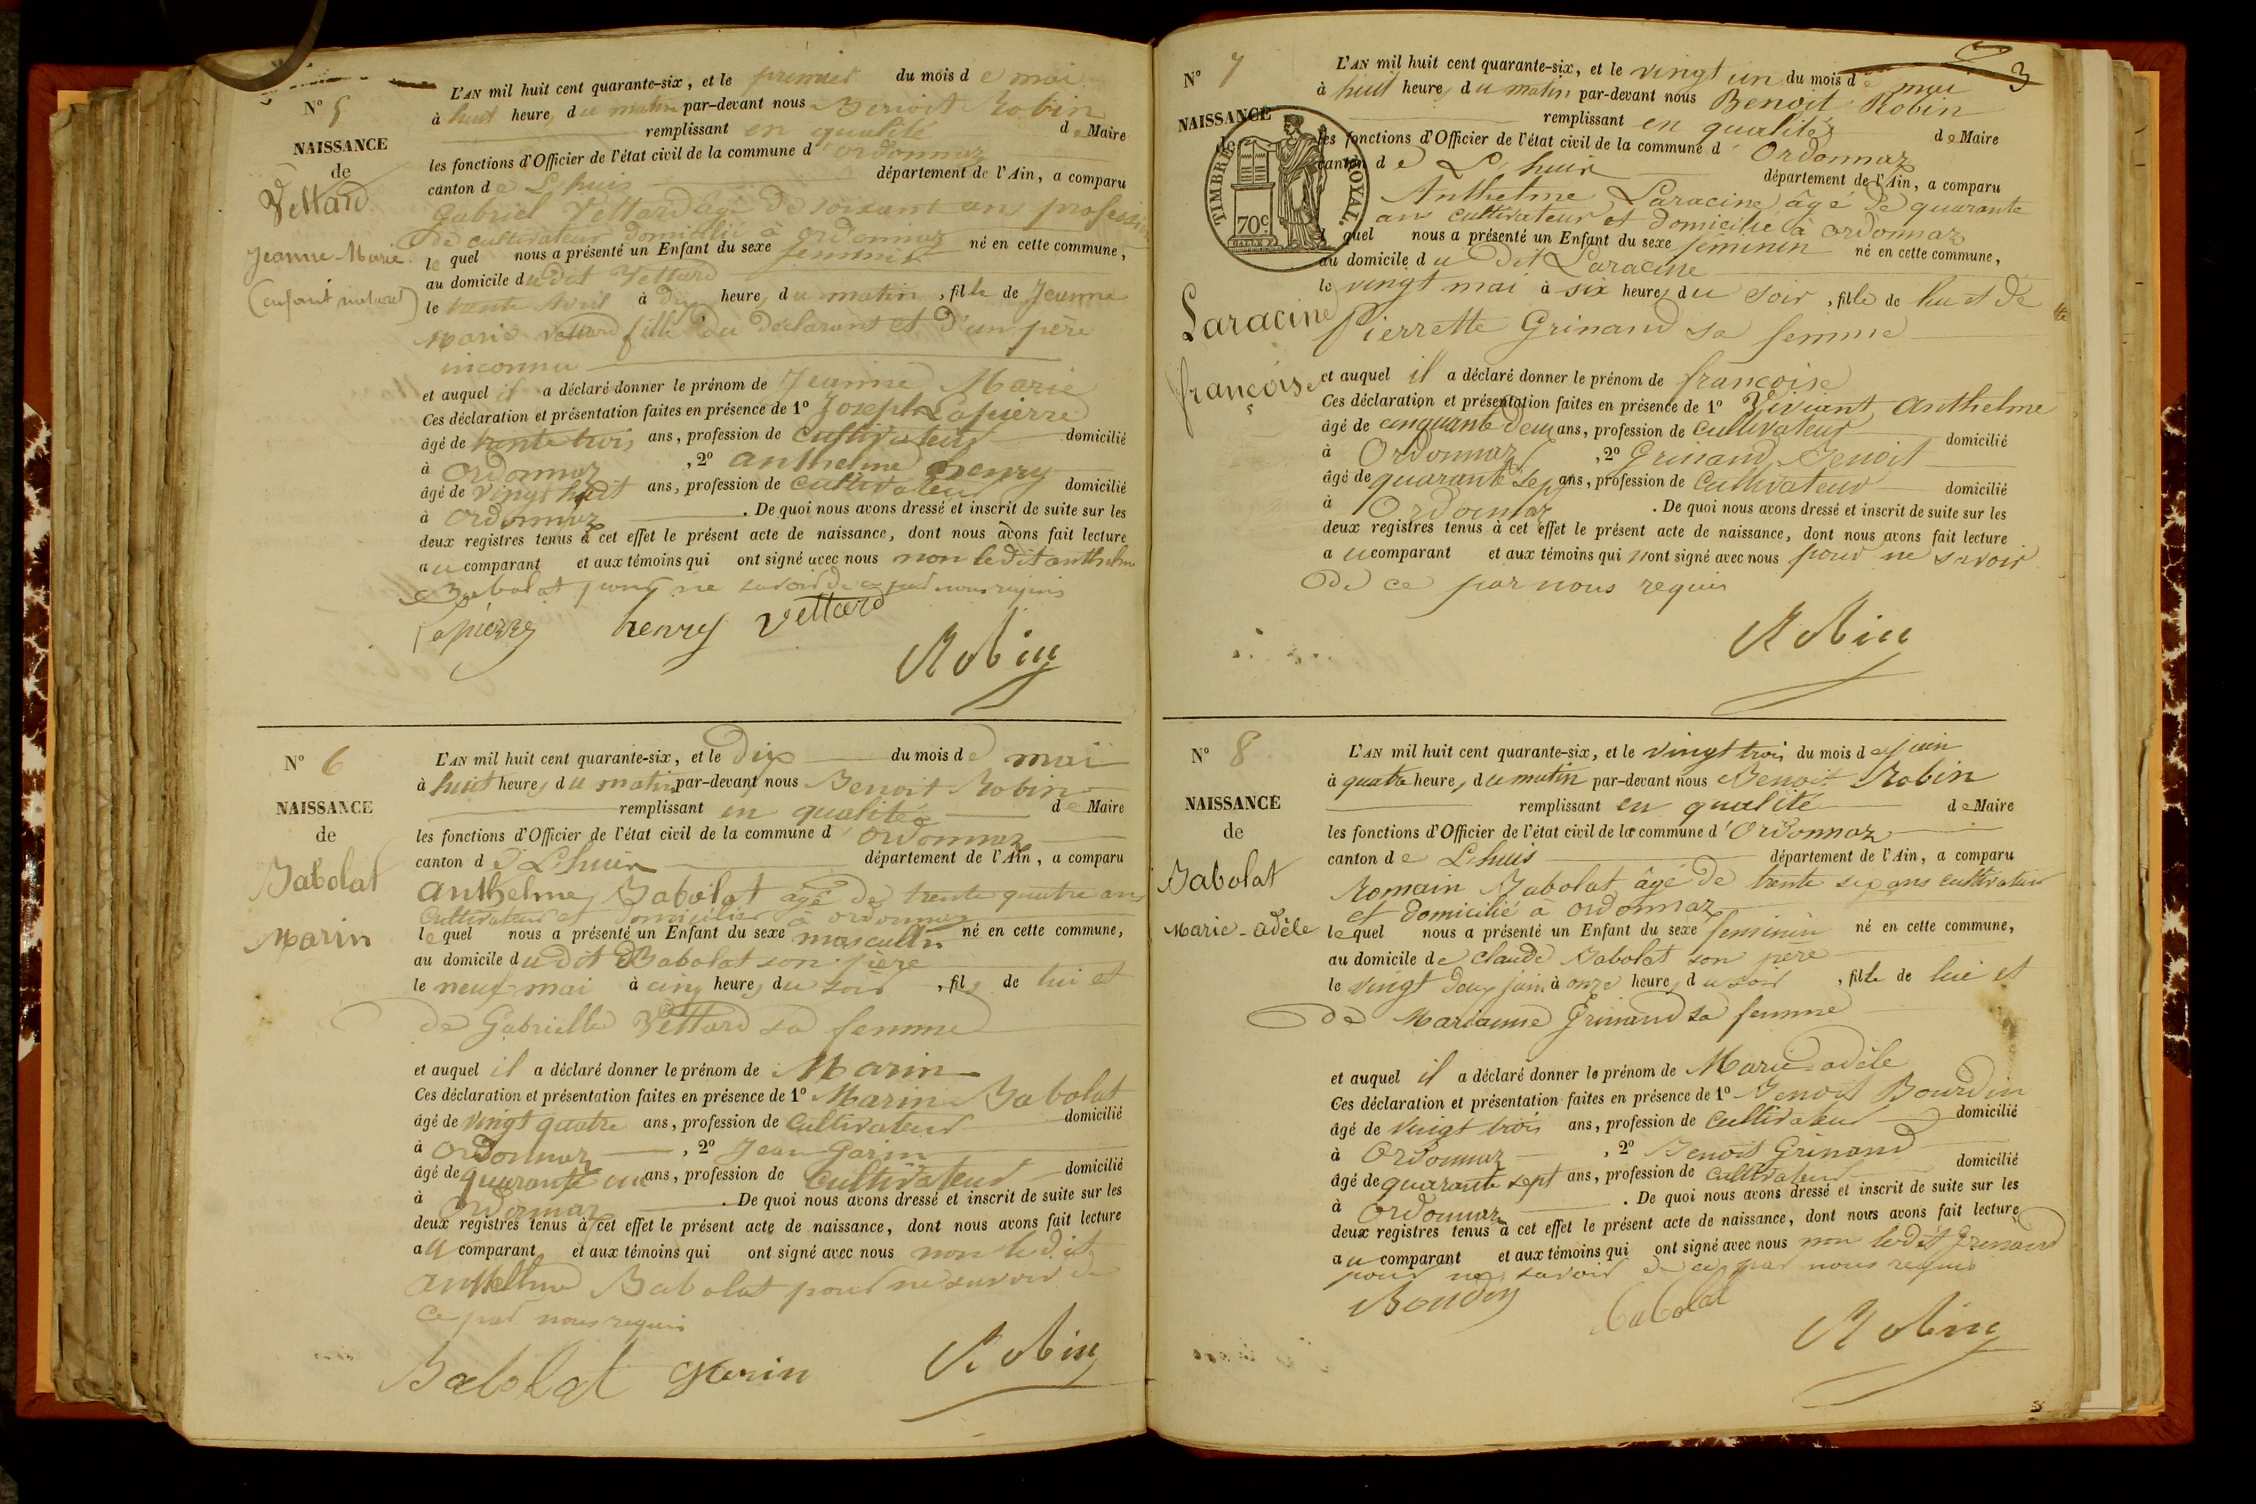 N° 5
NAISSANCE
de
Vettard
Jeanne-Marie
(enfant naturel)
L'AN mil huit cent quarante-six, et le premier du mois de mai
à huit heures du matin par-devant nous Benoit Robin
remplissant en qualité de Maire
les fonctions d'Officier de l'état civil de la commune d'ordonnaz
canton de Lhuis département de l'Ain, a comparu
Gabriel Vettard âgé de soixant ans profession
de cultivateur domicilié à ordonnaz
lequel nous a présenté un Enfant du sexe feminin né en cette commune,
au domicile du dit Vettard
le trente Avril à dix heures du matin, fille de Jeanne
Marie Vettard fille du déclarant et d'un père
inconnu
et auquel il a déclaré donner le prénom de Jeanne Marie
Ces déclaration et présentation faites en présence de 1° Joseph Lapierre
âgé de trente trois ans, profession de cultivateur domicilié
à Ordonnaz, 2° anthelme henry
âgé de vingt huit ans, profession de cultivateur domicilié
à Ordonnaz. De quoi nous avons dressé et inscrit de suite sur les
deux registres tenus à cet effet le présent acte de naissance, dont nous avons fait lecture
au comparant et aux témoins qui ont signé avec nous non le dit anthelme
Babolat pour ne savoir de ce par nous requis
Lapierre henry Vettard
Robin
N° 6
NAISSANCE
de
Babolat
Marin
L'AN mil huit cent quarante-six, et le dix du mois de mai
à huit heures du matin par-devant nous Benoit Robin
remplissant en qualité de Maire
les fonctions d'Officier de l'état civil de la commune d'ordonnaz
canton de Lhuis département de l'Ain, a comparu
anthelme Babolat âgé de trente quatre ans
cultivateur et domicilié à ordonnaz
lequel nous a présenté un Enfant du sexe masculin né en cette commune,
au domicile du dit Babolat son père
le neuf mai à cinq heures du soir, fils de lui et
de Gabrielle Vettard sa femme
et auquel il a déclaré donner le prénom de Marin
Ces déclaration et présentation faites en présence de 1° Marin Babolat
âgé de vingt quatre ans, profession de cultivateur domicilié
à Ordonnaz, 2° Jean Garin
âgé de quarante un ans, profession de cultivateur domicilié
à Ordonnaz. De quoi nous avons dressé et inscrit de suite sur les
deux registres tenus à cet effet le présent acte de naissance, dont nous avons fait lecture
au comparant et aux témoins qui ont signé avec nous non le dit
anthelme Babolat pour ne savoir de
ce par nous requis
Babolat Garin Robin
3
N° 7
NAISSANCE
de
TIMBRE ROYAL.
70c.
Laracine
françoise
L'AN mil huit cent quarante-six, et le vingt un du mois de mai
à huit heures du matin par-devant nous Benoit Robin
remplissant en qualité de Maire
les fonctions d'Officier de l'état civil de la commune d'Ordonnaz
canton de Lhuis département de l'Ain, a comparu
Anthelme Laracine âgé de quarante
ans cultivateur et domicilié à ordonnaz
lequel nous a présenté un Enfant du sexe feminin né en cette commune,
au domicile du dit Laracine
le vingt mai à six heures du soir, fille de lui et de
Pierrette Grinand sa femme
et auquel il a déclaré donner le prénom de françoise
Ces déclaration et présentation faites en présence de 1° Viviant anthelme
âgé de cinquante deux ans, profession de cultivateur domicilié
à Ordonnaz, 2° Grinand Benoit
âgé de quarante sept ans, profession de cultivateur domicilié
à Ordonnaz. De quoi nous avons dressé et inscrit de suite sur les
deux registres tenus à cet effet le présent acte de naissance, dont nous avons fait lecture
au comparant et aux témoins qui n'ont signé avec nous pour ne savoir
de ce par nous requis
Robin
N° 8
NAISSANCE
de
Babolat
Marie-adèle
L'AN mil huit cent quarante-six, et le vingt trois du mois de juin
à quatre heures du matin par-devant nous Benoit Robin
remplissant en qualité de Maire
les fonctions d'Officier de l'état civil de la commune d'Ordonnaz
canton de Lhuis département de l'Ain, a comparu
Romain Babolat âgé de trente six ans cultivateur
et domicilié à ordonnaz
lequel nous a présenté un Enfant du sexe feminin né en cette commune,
au domicile de claude Babolat son père
le vingt deux juin à onze heures du soir, fille de lui et
de Marianne Grinand sa femme
et auquel il a déclaré donner le prénom de Marie adèle
Ces déclaration et présentation faites en présence de 1° Benoit Bourdin
âgé de vingt trois ans, profession de cultivateur domicilié
à Ordonnaz, 2° Benoit Grinand
âgé de quarante sept ans, profession de cultivateur domicilié
à Ordonnaz. De quoi nous avons dressé et inscrit de suite sur les
deux registres tenus à cet effet le présent acte de naissance, dont nous avons fait lecture
au comparant et aux témoins qui ont signé avec nous non le dit Grinand
pour ne savoir de ce par nous requis
Babolat
Robin